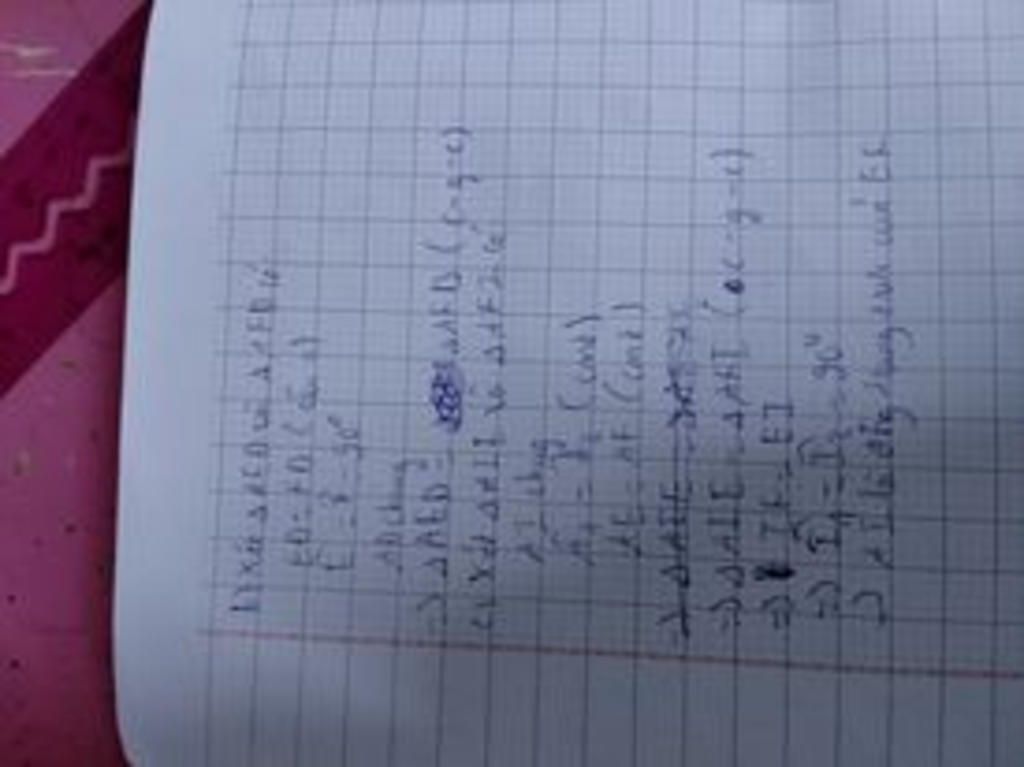 b) Xét ΔAED và ΔAFD có
ED = FD (
E = F = 90°
AD chung
=> ΔAED = ΔAFD (c-g-c)
c) Xét ΔAEI và ΔAFI có
AI chung
A1 = A2 (cmt)
AE = AF (cmt)
=> ΔAIE
=> ΔAIE = ΔAFI (c-g-c)
=> IF = EI
=> I1 = I2 = 90°
=> AI là đường trung trực của EF